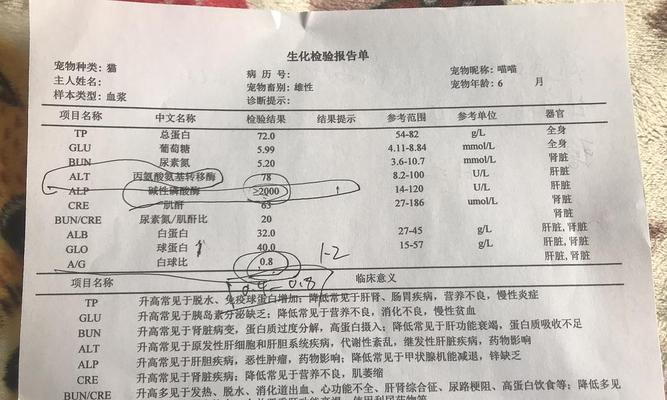 生化检验报告单
宠物种类: 猫 病 历 号: 宠物昵称: 喵喵
主人姓名: 宠物畜别: 雄性 宠物年龄: 6 月
样本类型: 血浆 诊断提示:
项目名称 中文名称 检验结果 结果提示 参考范围 参考单位 器官
TP 总蛋白 72.0 54-82 g/L 全身
GLU 葡萄糖 5.99 4.11-8.84 mmol/L 全身
BUN 尿素氮 5.20 3.6-10.7 mmol/L 肾脏
ALT 丙氨酸氨基转移酶 78 8.2-100 U/L 肝脏
ALP 碱性磷酸酶 ≥2000 ↑ 14-120 U/L 肝脏
CRE 肌酐 63 27-186 umol/L 肾脏
BUN/CRE 尿素氮/肌酐比 20 肾脏
ALB 白蛋白 32.0 27-45 g/L 肝脏, 肾脏
GLO 球蛋白 ↑ 40.0 15-57 g/L 肝脏, 肾脏
A/G 白球比 0.8 1-2 肝脏, 肾脏
0.4-0.8
项目名称 临床意义
TP 升高常见于脱水、免疫球蛋白增加; 降低常见于肝肾、肠胃疾病, 营养不良, 慢性炎症
GLU 升高常见于胰岛素分泌缺乏; 降低常见于营养不良, 消化不良, 慢性贫血
BUN 升高常见于肾脏病变, 蛋白质过度分解, 高蛋白摄入; 降低常见于肝功能衰竭, 蛋白质吸收不足
ALT 升高常见于原发性肝细胞和肝胆系统疾病, 代谢性紊乱, 继发性肝脏疾病, 药物影响
ALP 升高常见于肝胆疾病, 恶性肿瘤, 药物影响; 降低常见于甲状腺机能减退, 锌缺乏
CRE 升高常见于肾脏疾病; 降低常见于营养不良, 肌萎缩
BUN/CRE 升高多见于发热、脱水、消化道出血、心功能不全、肝肾综合征、尿路梗阻、高蛋白饮食等; 降低多见